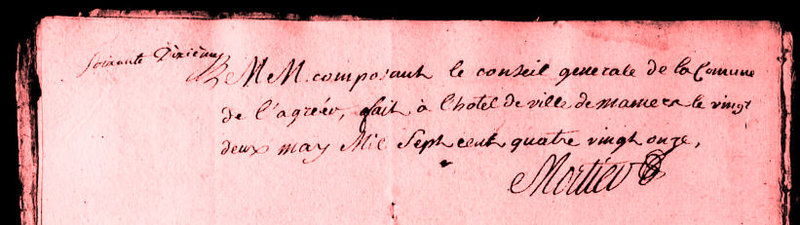 soixante Dixieme
MM. composant le conseil generale de la Comune
de l'agréer, fait à l'hotel de ville de mamers le vingt
deux may Mil Sept cent quatre vingt onze,
Mortier